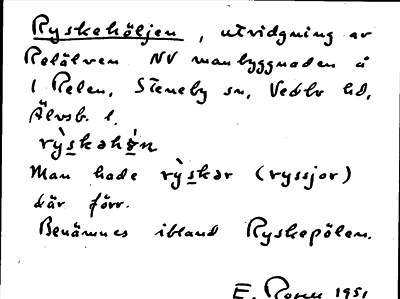 Ryskehöljen, utvidgning av
Relälven NV manbyggnaden å
1 Relen, Steneby sn, Vedbo hd,
Älvsb. l.
rỳskəhö̀n
Man hade rỳskər (ryssjor)
där förr.
Benämnes ibland Ryskepölen.
E. Rosen 1951